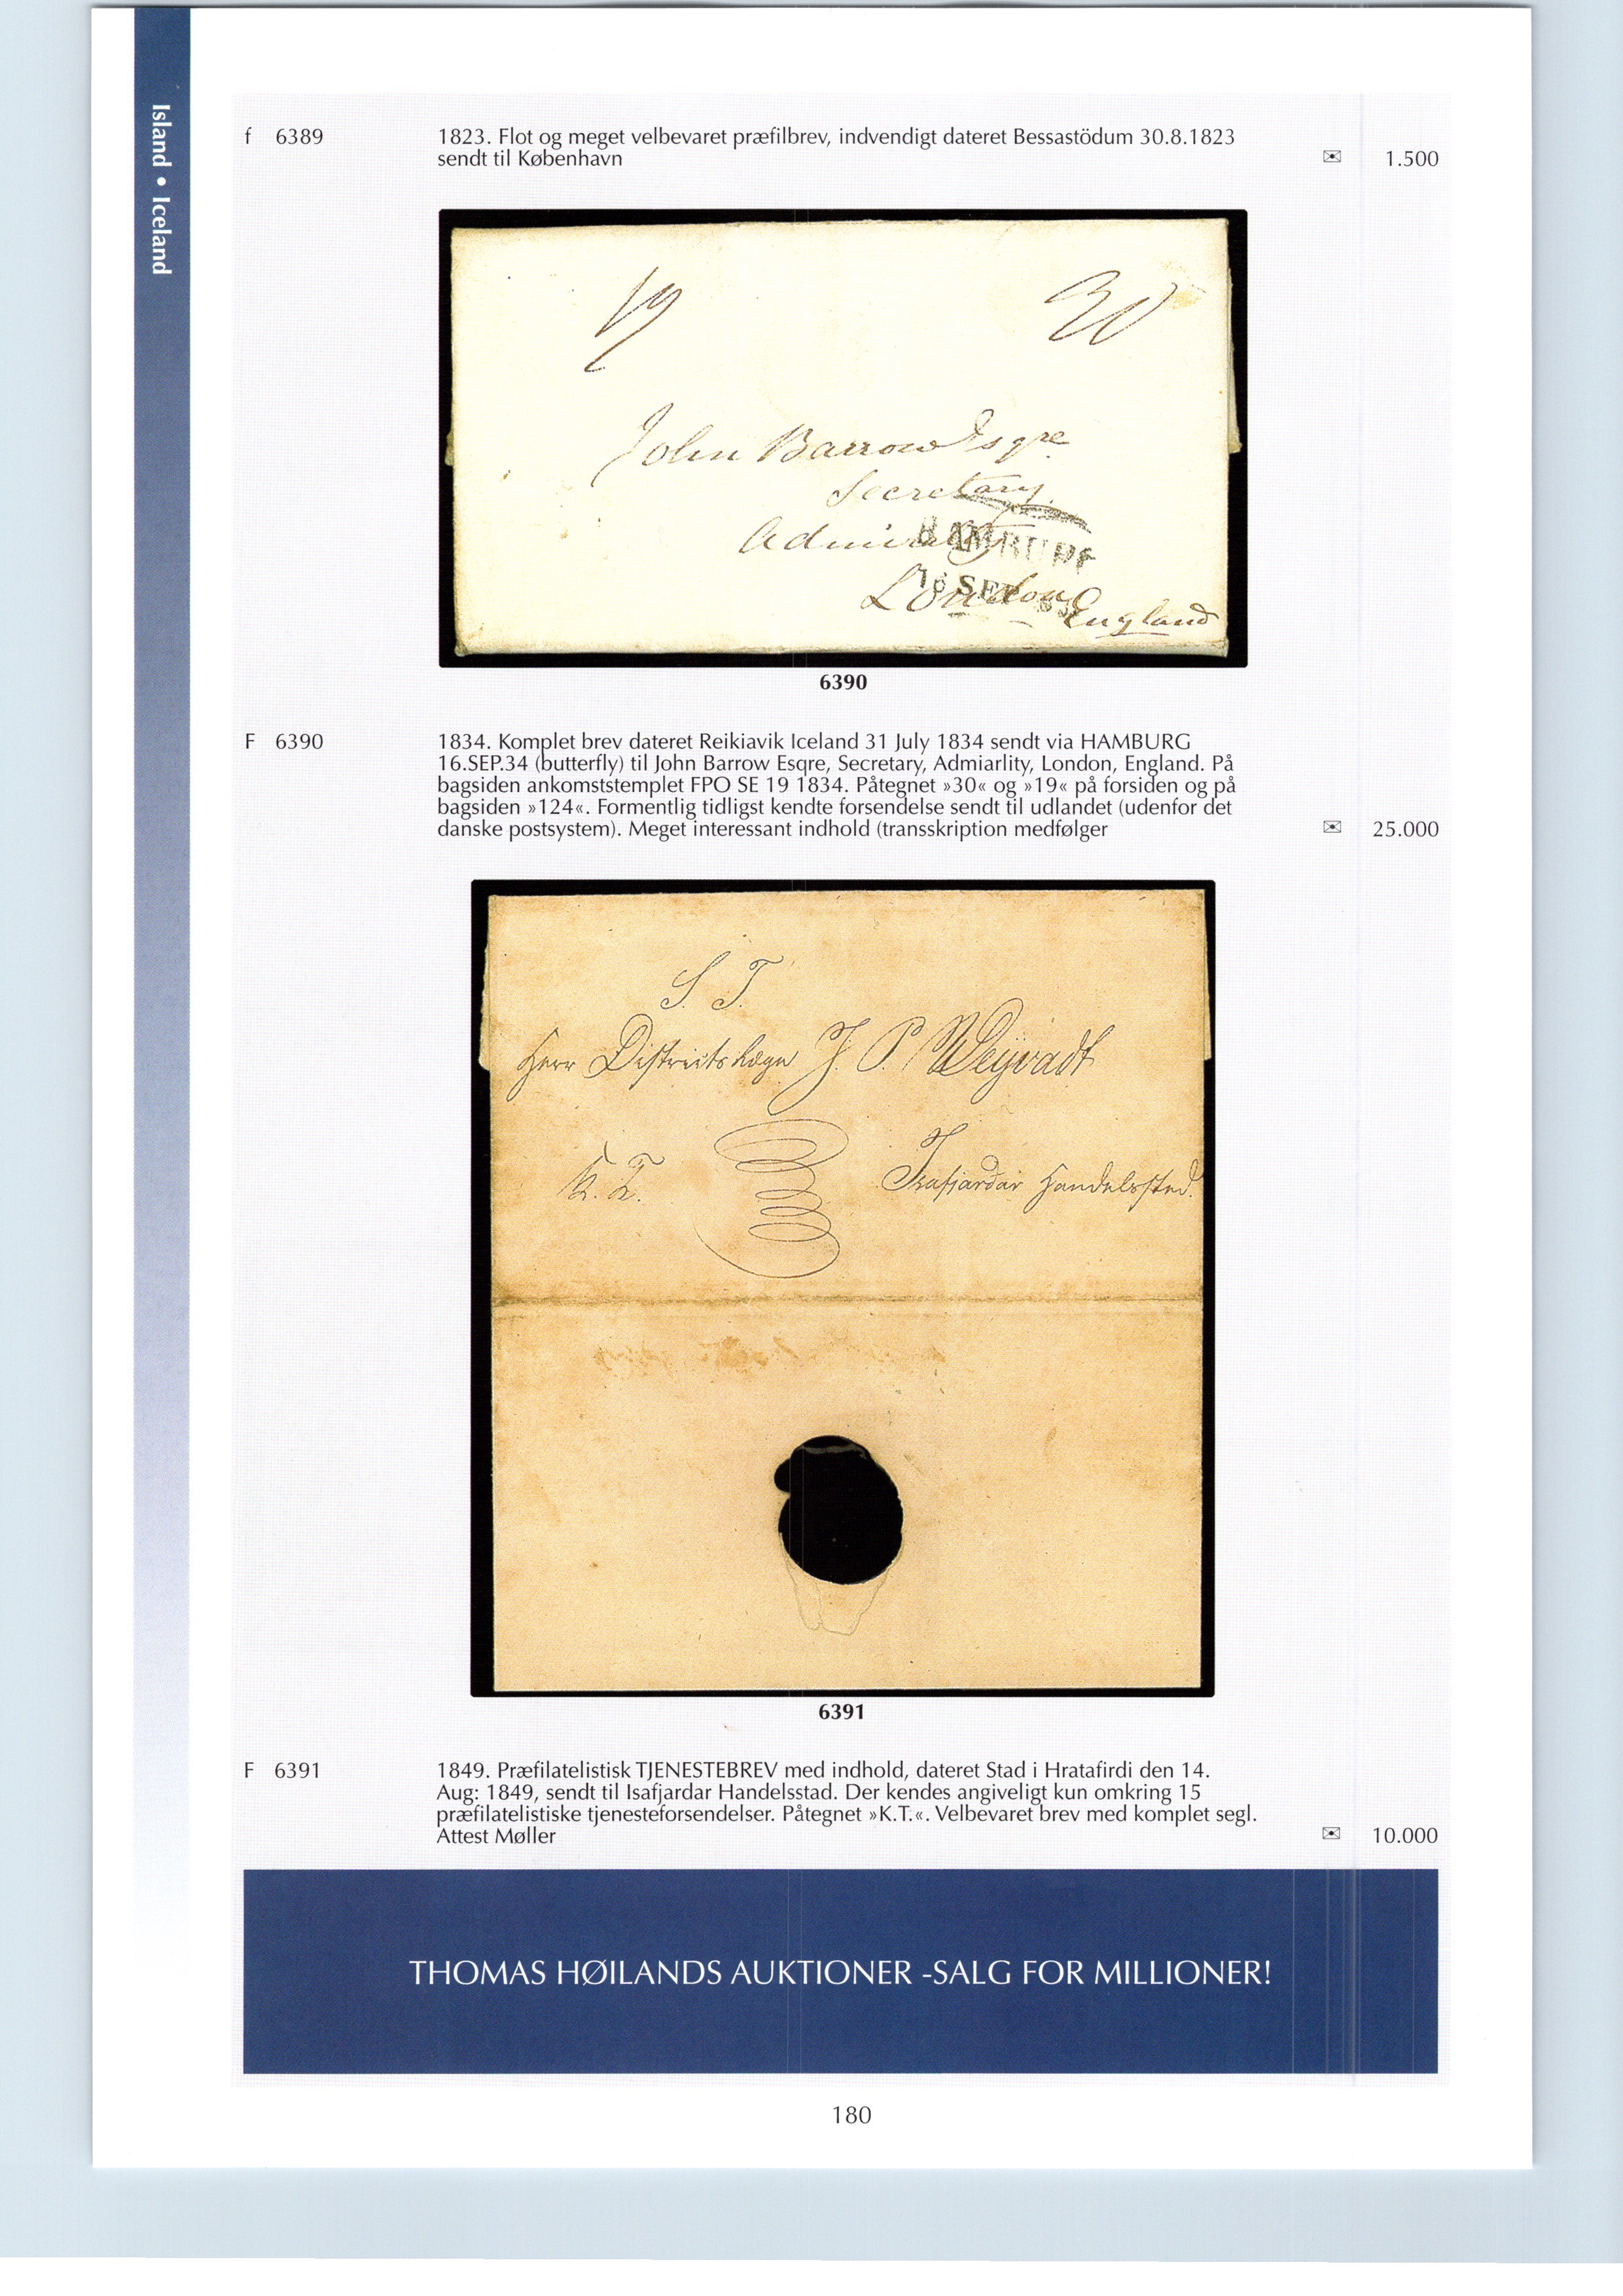 Island • Iceland
f 6389 1823. Flot og meget velbevaret præfilbrev, indvendigt dateret Bessastödum 30.8.1823
sendt til København ✉ 1.500
19 30
John Barrow Esqre
Secretary
Admiralty
HAMBURG
London
16 SEP
England
6390
F 6390 1834. Komplet brev dateret Reikiavik Iceland 31 July 1834 sendt via HAMBURG
16.SEP.34 (butterfly) til John Barrow Esqre, Secretary, Admiarlity, London, England. På
bagsiden ankomststemplet FPO SE 19 1834. Påtegnet »30« og »19« på forsiden og på
bagsiden »124«. Formentlig tidligst kendte forsendelse sendt til udlandet (udenfor det
danske postsystem). Meget interessant indhold (transskription medfølger ✉ 25.000
S. T.
Herr Districtslæge J. P. Weyvadt
K. T. Isafjardar Handelssted.
6391
F 6391 1849. Præfilatelistisk TJENESTEBREV med indhold, dateret Stad i Hratafirdi den 14.
Aug: 1849, sendt til Isafjardar Handelsstad. Der kendes angiveligt kun omkring 15
præfilatelistiske tjenesteforsendelser. Påtegnet »K.T.«. Velbevaret brev med komplet segl.
Attest Møller ✉ 10.000
THOMAS HØILANDS AUKTIONER -SALG FOR MILLIONER!
180